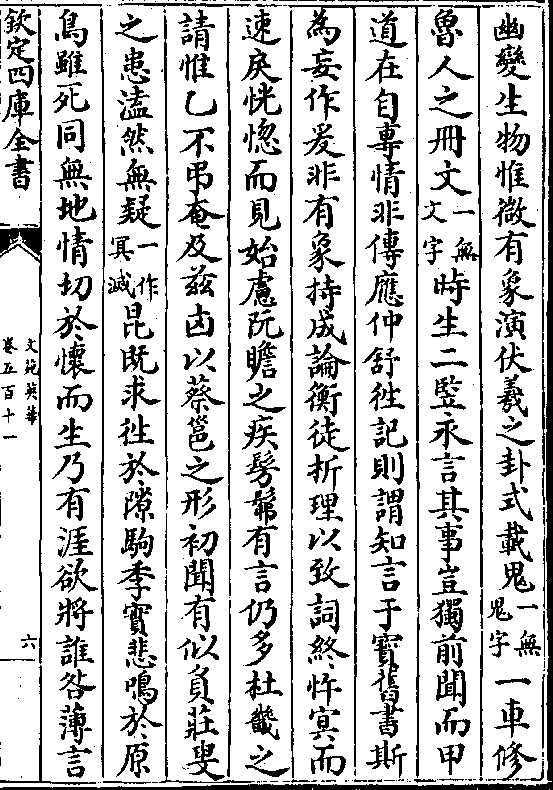 幽變生物惟微有象演伏羲之卦式載鬼一無鬼字一車修
魯人之冊文一無文字時生二監永言其事豈獨前聞而甲
道在自專情非傳應仲舒徃記則謂知言于寶舊書斯
為妄作爰非有象持成論衡徒析理以致詞終忤㝠而
速戾恍惚而見始慮阮瞻之疾髣髴有言仍多杜畿之
請惟乙不弔奄及兹凶以蔡邕之形初聞有似負莊叟
之患溘然無疑一作㝠滅昆既求徃於隙駒季實悲鳴於原
鳥雖死同無地情切於懷而生乃有涯欲將誰咎薄言
欽定四庫全書
文苑英華
卷五百十一
六